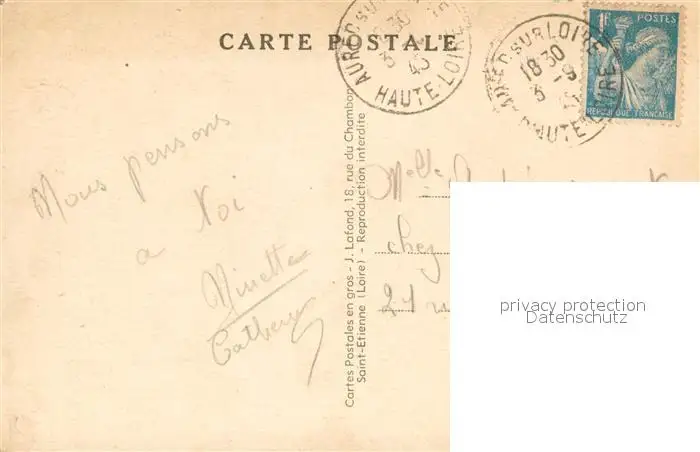 CARTE POSTALE
AUREC SUR LOIRE
18 30
3 -9
HAUTE-LOIRE
AUREC SUR LOIRE
18 30
3 -9
HAUTE-LOIRE
1F POSTES
REPUBLIQUE FRANÇAISE
Nous pensons
a toi
Minette
Cartes Postales en gros - J. Lafond, 18, rue du Chambon
Saint-Etienne (Loire) - Reproduction interdite
Melle
chez
21
privacy protection
Datenschutz